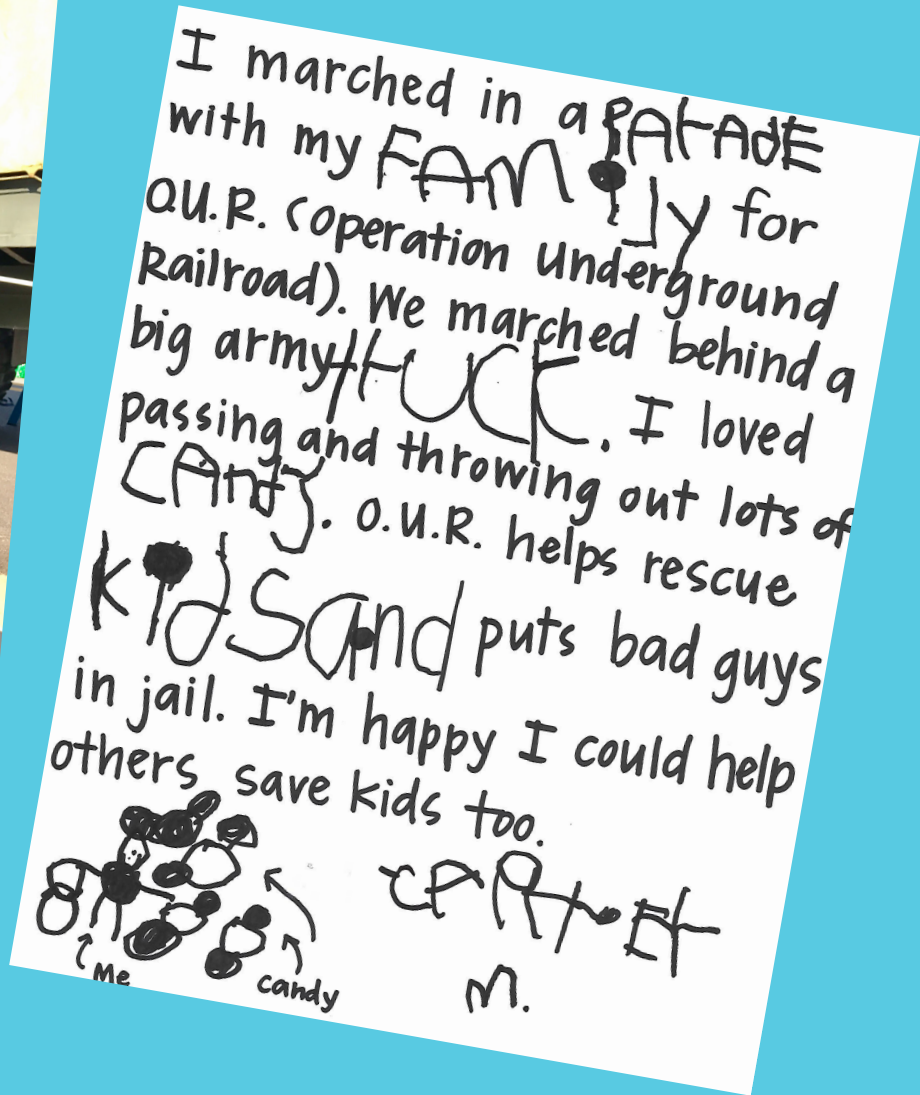 I marched in a PArAdE
with my FAMily for
O.U.R. (operation underground
Railroad). We marched behind a
big army trUCK. I loved
passing and throwing out lots of
CAndy. O.U.R. helps rescue
kids and puts bad guys
in jail. I'm happy I could help
others save kids too.
CARtEr
M.
Me
candy